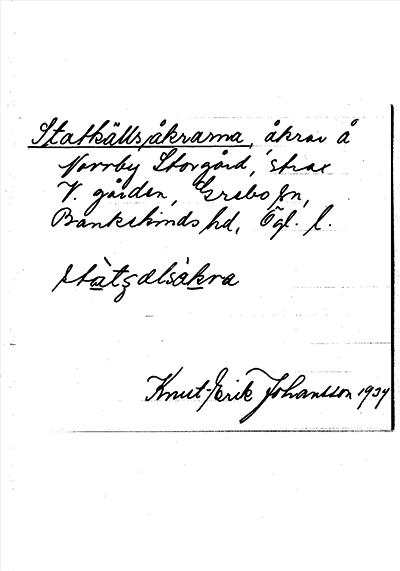 Statkällsåkrarna, åkrar å
Norrby Storgård, strax
V. gården, Grebo sn,
Bankekinds hd, Ögl. l.
stàtʂælsàkra
Knut-Erik Johansson 1934